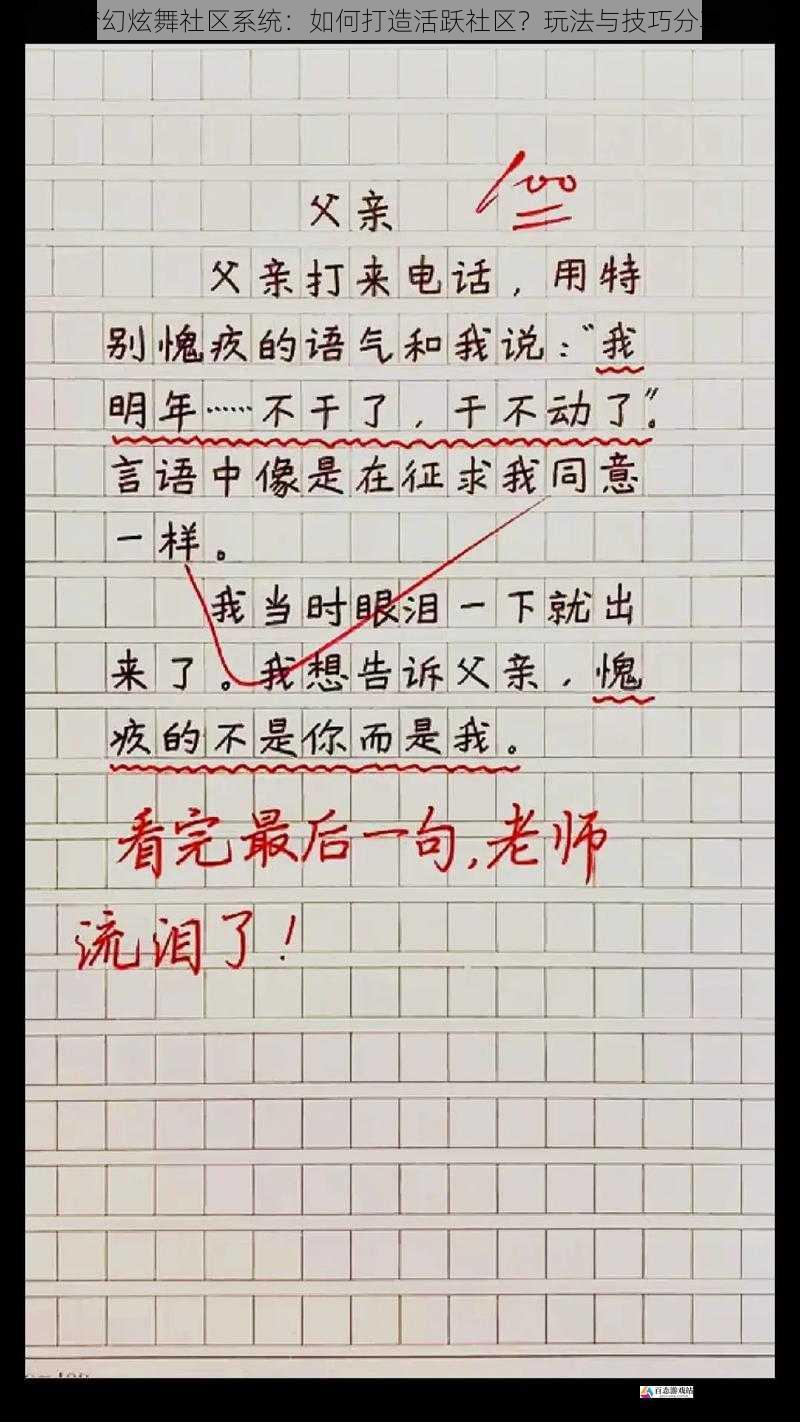 幻炫舞社区系统：如何打造活跃社区？玩法与技巧分
父亲 100
父亲打来电话，用特
别愧疚的语气和我说：“我
明年……不干了，干不动了”。
言语中像是在征求我同意
一样。
我当时眼泪一下就出
来了。我想告诉父亲，愧
疚的不是你而是我。
看完最后一句，老师
流泪了！
百态游戏站